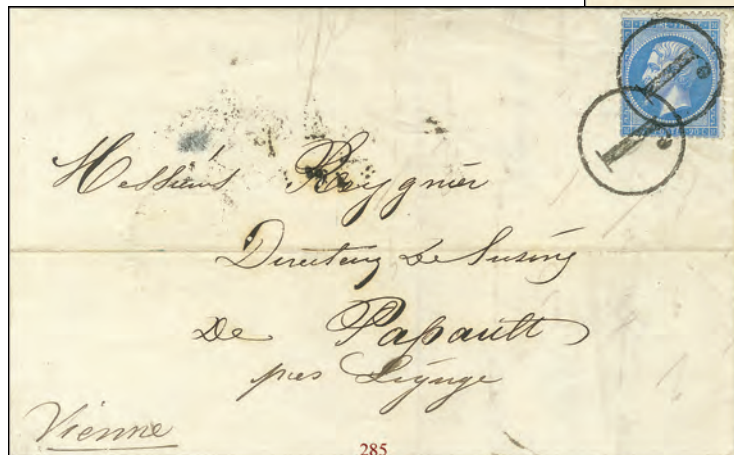 1e
1e
Messieurs Reygnier
Directeur de l'usine
De Papault
près Ligugé
Vienne
285